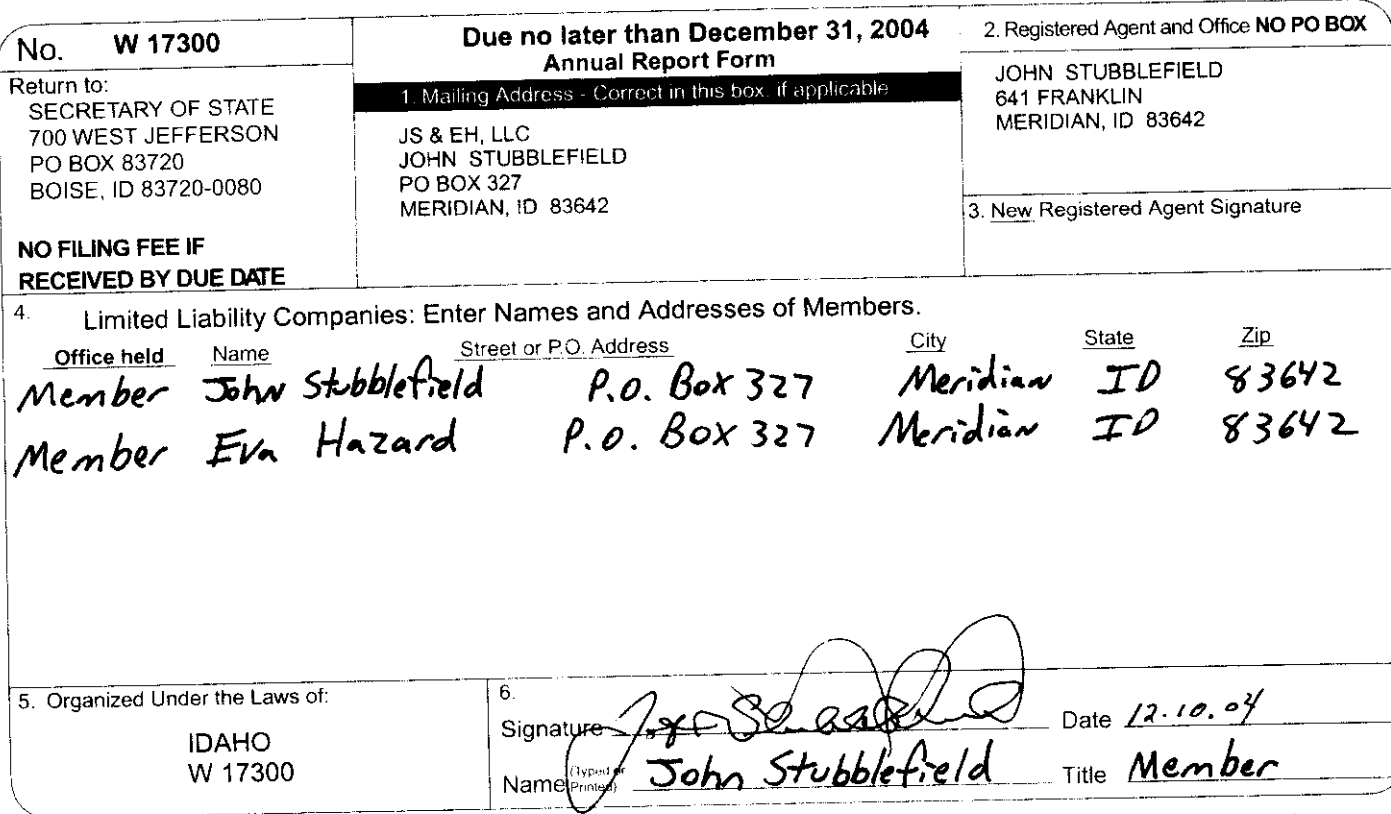 No. W 17300
Return to:
SECRETARY OF STATE
700 WEST JEFFERSON
PO BOX 83720
BOISE, ID 83720-0080
NO FILING FEE IF
RECEIVED BY DUE DATE
Due no later than December 31, 2004
Annual Report Form
1. Mailing Address - Correct in this box, if applicable
JS & EH, LLC
JOHN STUBBLEFIELD
PO BOX 327
MERIDIAN, ID 83642
2. Registered Agent and Office NO PO BOX
JOHN STUBBLEFIELD
641 FRANKLIN
MERIDIAN, ID 83642
3. New Registered Agent Signature
4. Limited Liability Companies: Enter Names and Addresses of Members.
Office held Name Street or P.O. Address City State Zip
Member John Stubblefield P.O. Box 327 Meridian ID 83642
Member Eva Hazard P.O. Box 327 Meridian ID 83642
5. Organized Under the Laws of:
IDAHO
W 17300
6.
Signature Date 12.10.04
Name (Typed or Printed) John Stubblefield Title Member